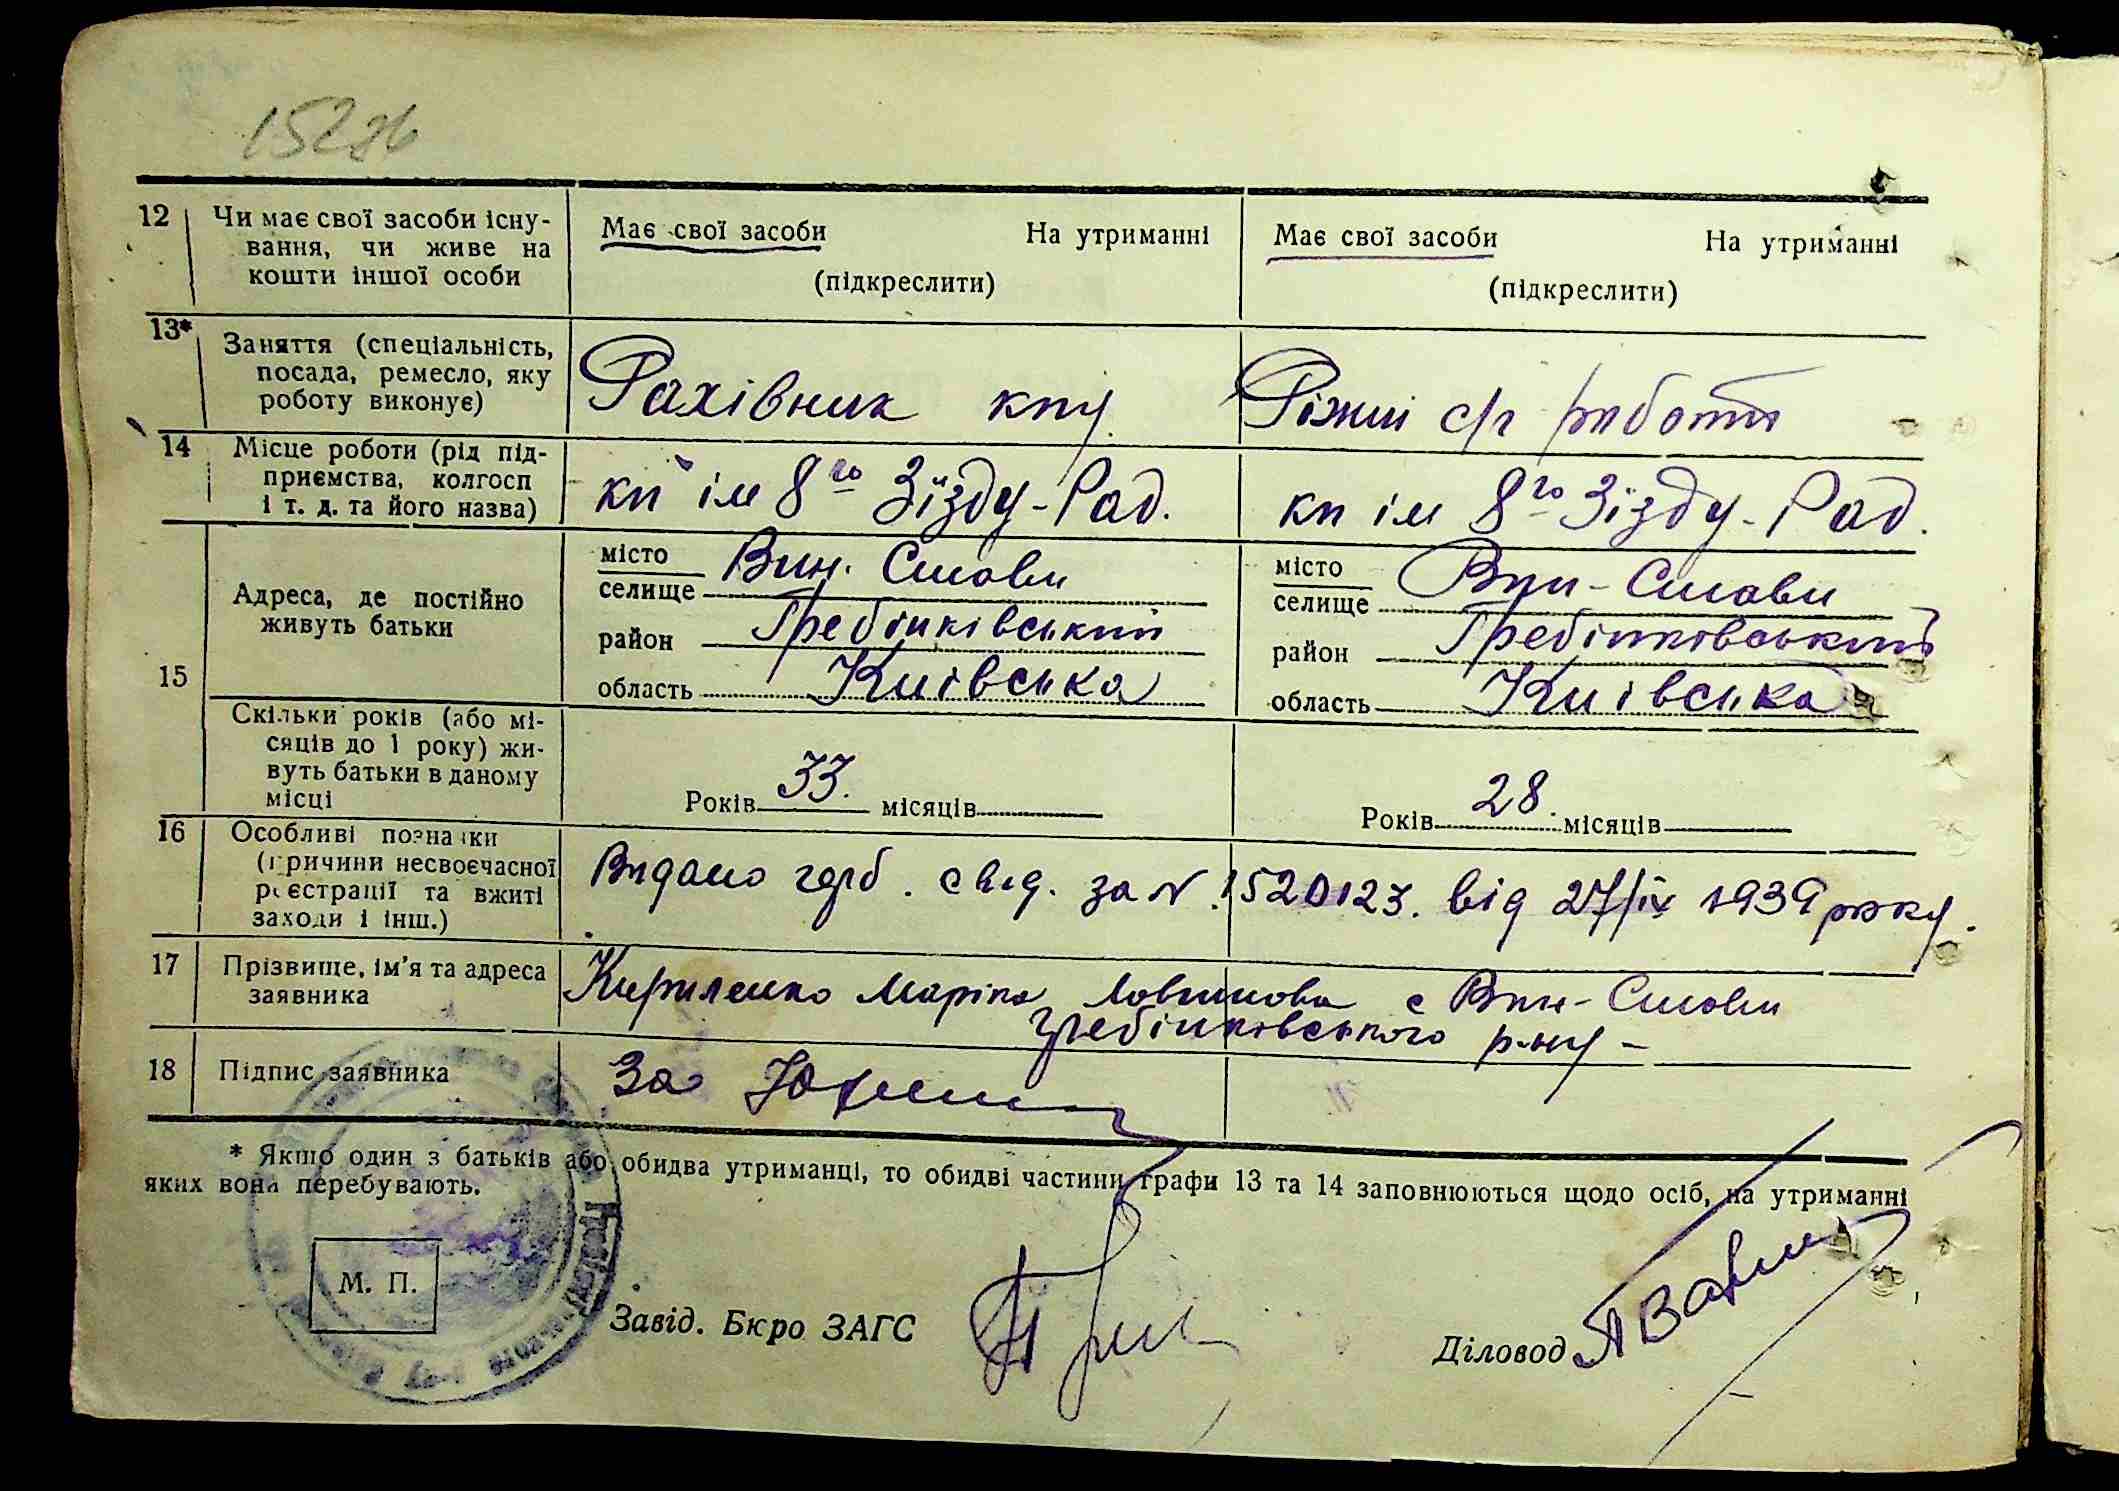 15286
12 Чи має свої засоби існу-
вання, чи живе на
кошти іншої особи
Має свої засоби На утриманні
(підкреслити)
Має свої засоби На утриманні
(підкреслити)
13* Заняття (спеціальність,
посада, ремесло, яку
роботу виконує)
Рахівник кпу
Ріжні с/г роботи
14 Місце роботи (рід під-
приємства, колгосп
і т. д. та його назва)
кп ім 8го Зїзду-Рад.
кп ім 8го Зїзду-Рад.
15 Адреса, де постійно
живуть батьки
місто Вин. Стави
селище
район Гребінківський
область Київська
місто Вин-Стави
селище
район Гребінківський
область Київська
Скільки років (або мі-
сяців до 1 року) жи-
вуть батьки в даному
місці
Років 33. місяців
Років 28 місяців
16 Особливі позначки
(причини несвоєчасної
реєстрації та вжиті
заходи і інш.)
Видано герб. свід. за N 1520123. від 27/ІХ 1939 року.
17 Прізвище, ім'я та адреса
заявника
Кириленко Марія с Вин-Стави
Гребінківського р-ну -
18 Підпис заявника
За
* Якщо один з батьків або обидва утриманці, то обидві частини графи 13 та 14 заповнюються щодо осіб, на утриманні
яких вони перебувають.
М. П.
Завід. Бюро ЗАГС
Діловод